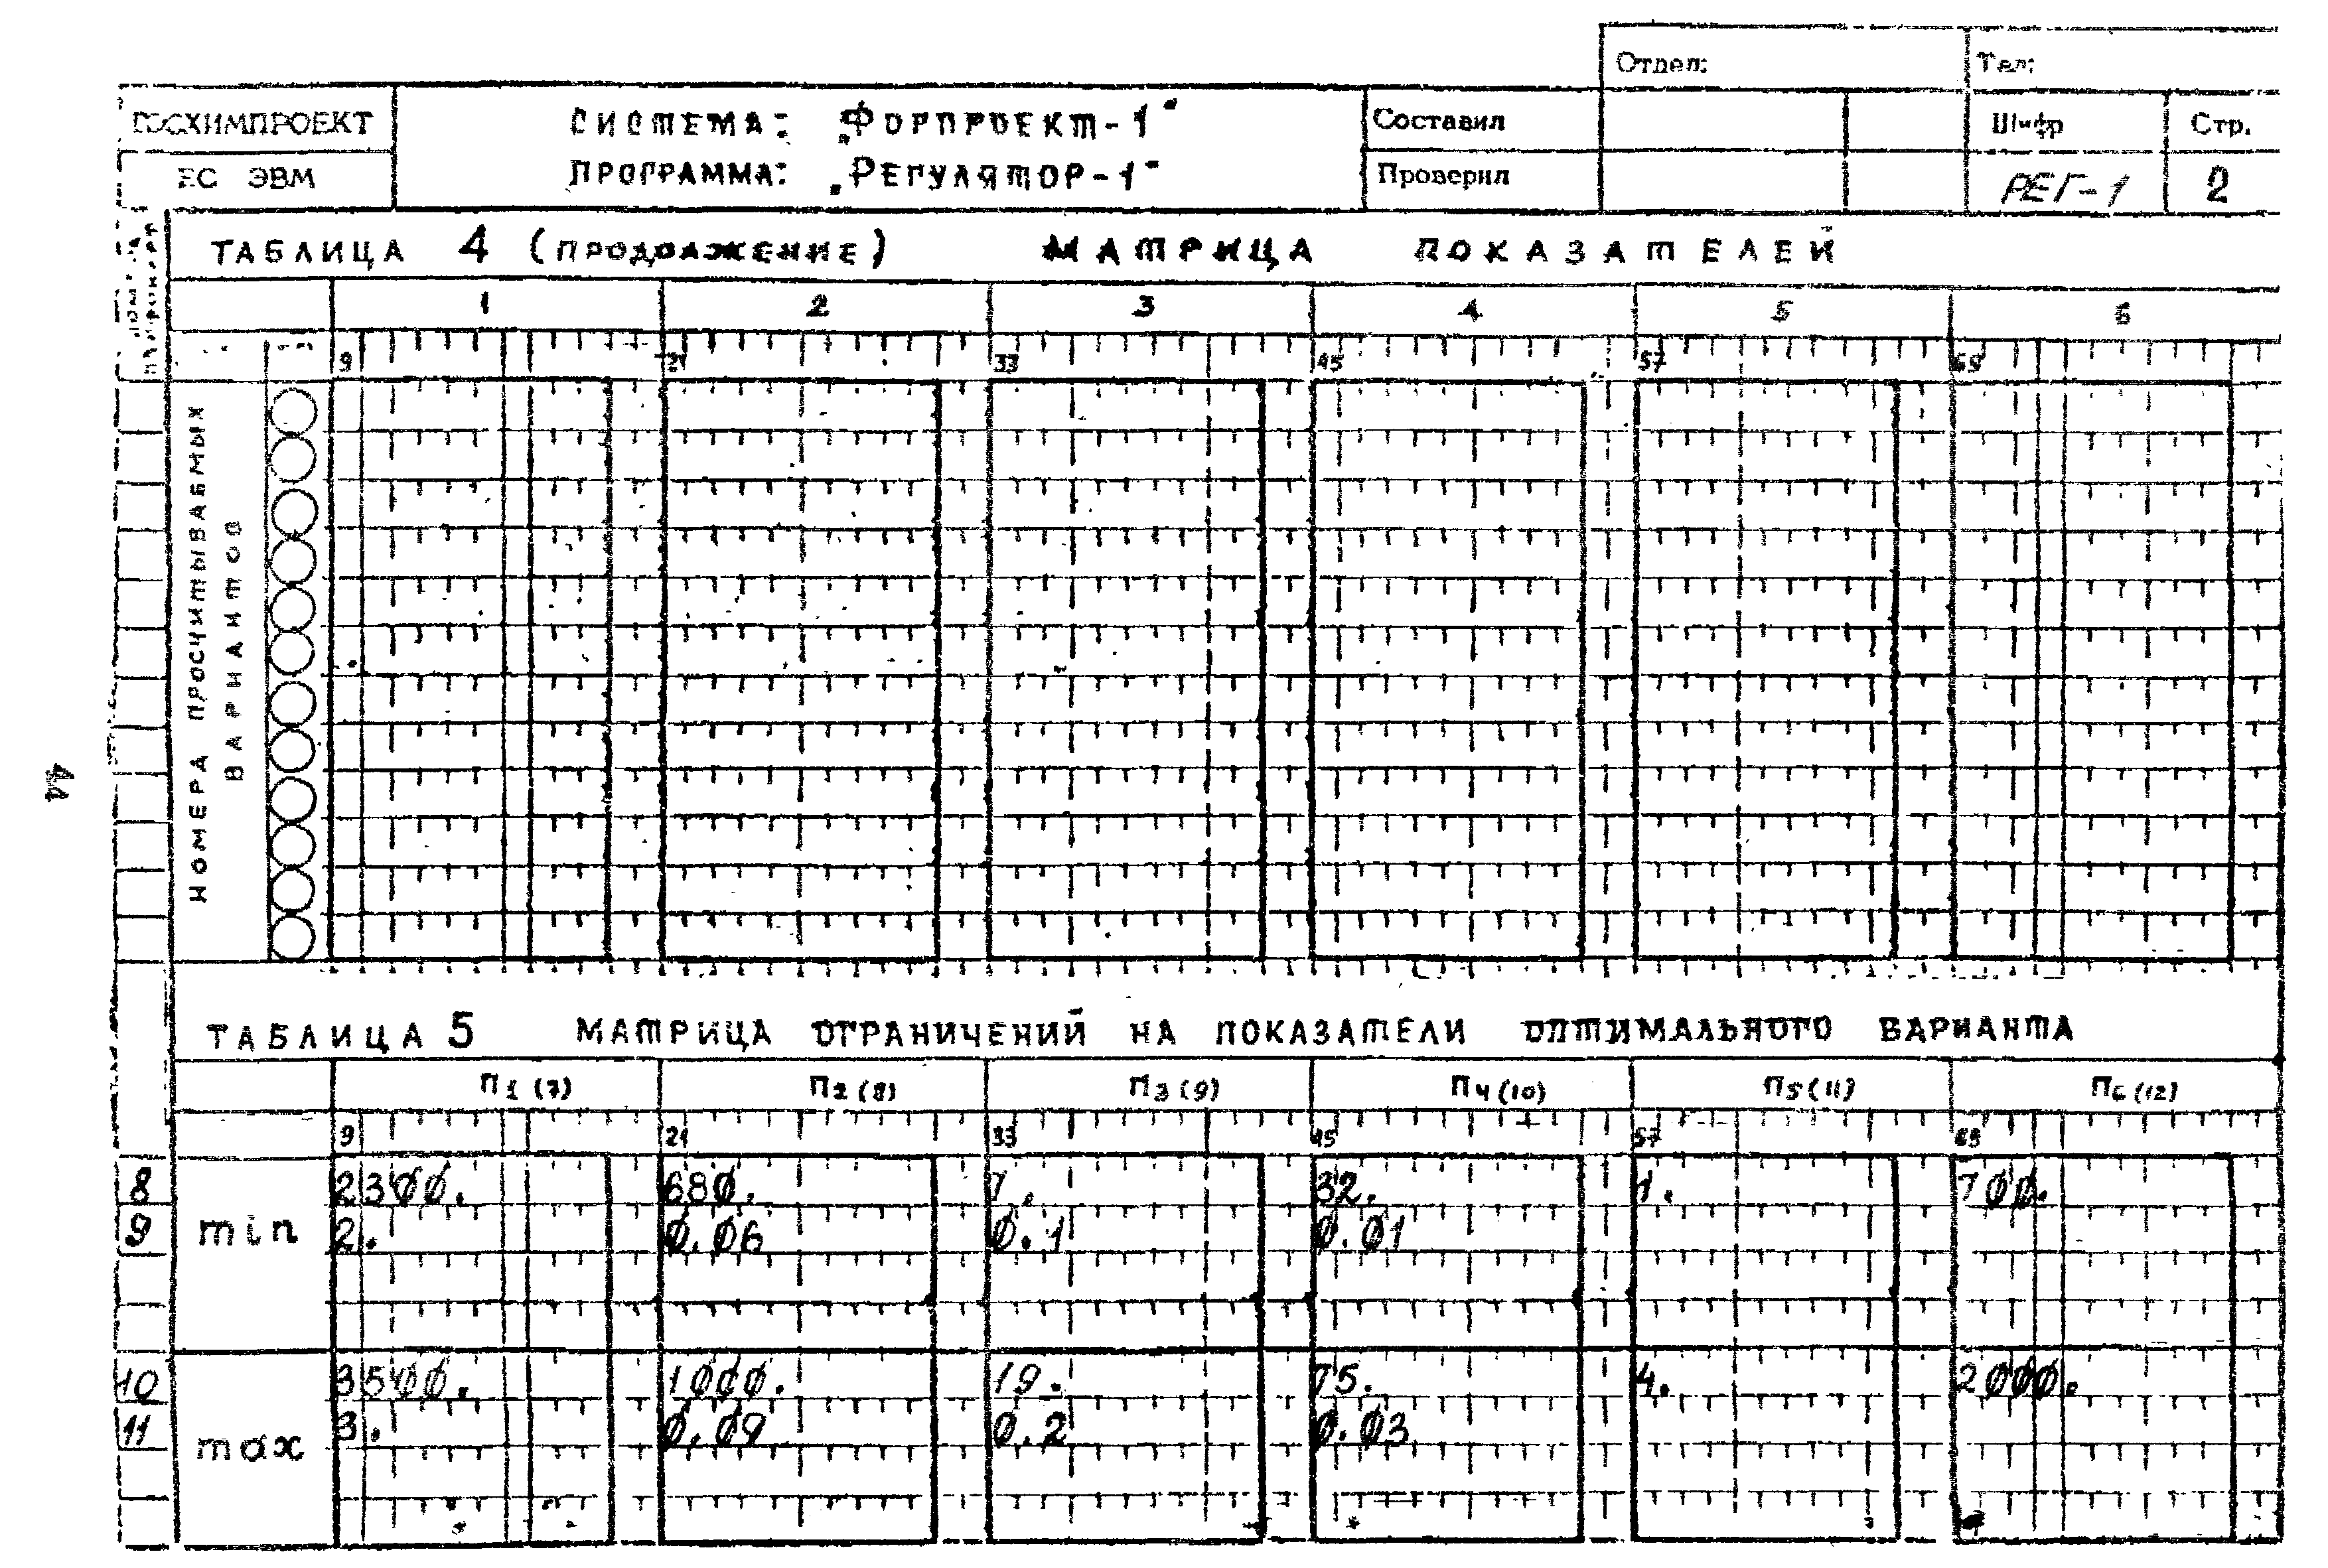 Отдел: Тел:
ГОСХИМПРОЕКТ СИСТЕМА: „ФОРПРОЕКТ-1" Составил Шифр Стр.
ЕС ЭВМ ПРОГРАММА: „РЕГУЛЯТОР-1" Проверил РЕГ-1 2
ТАБЛИЦА 4 (ПРОДОЛЖЕНИЕ) МАТРИЦА ПОКАЗАТЕЛЕЙ
1 2 3 4 5 6
9 21 33 45 57 69
НОМЕРА ПРОСЧИТЫВАЕМЫХ
ВАРИАНТОВ
ТАБЛИЦА 5 МАТРИЦА ОГРАНИЧЕНИЙ НА ПОКАЗАТЕЛИ ОПТИМАЛЬНОГО ВАРИАНТА
П1 (7) П2 (8) П3 (9) П4 (10) П5 (11) П6 (12)
9 21 33 45 57 69
8 2300. 680. 7. 32. 1. 700.
min
9 2. 0.06 0.1 0.01
10 3500. 1000. 19. 75. 4. 2000.
11 3. 0.09 0.2 0.03
max